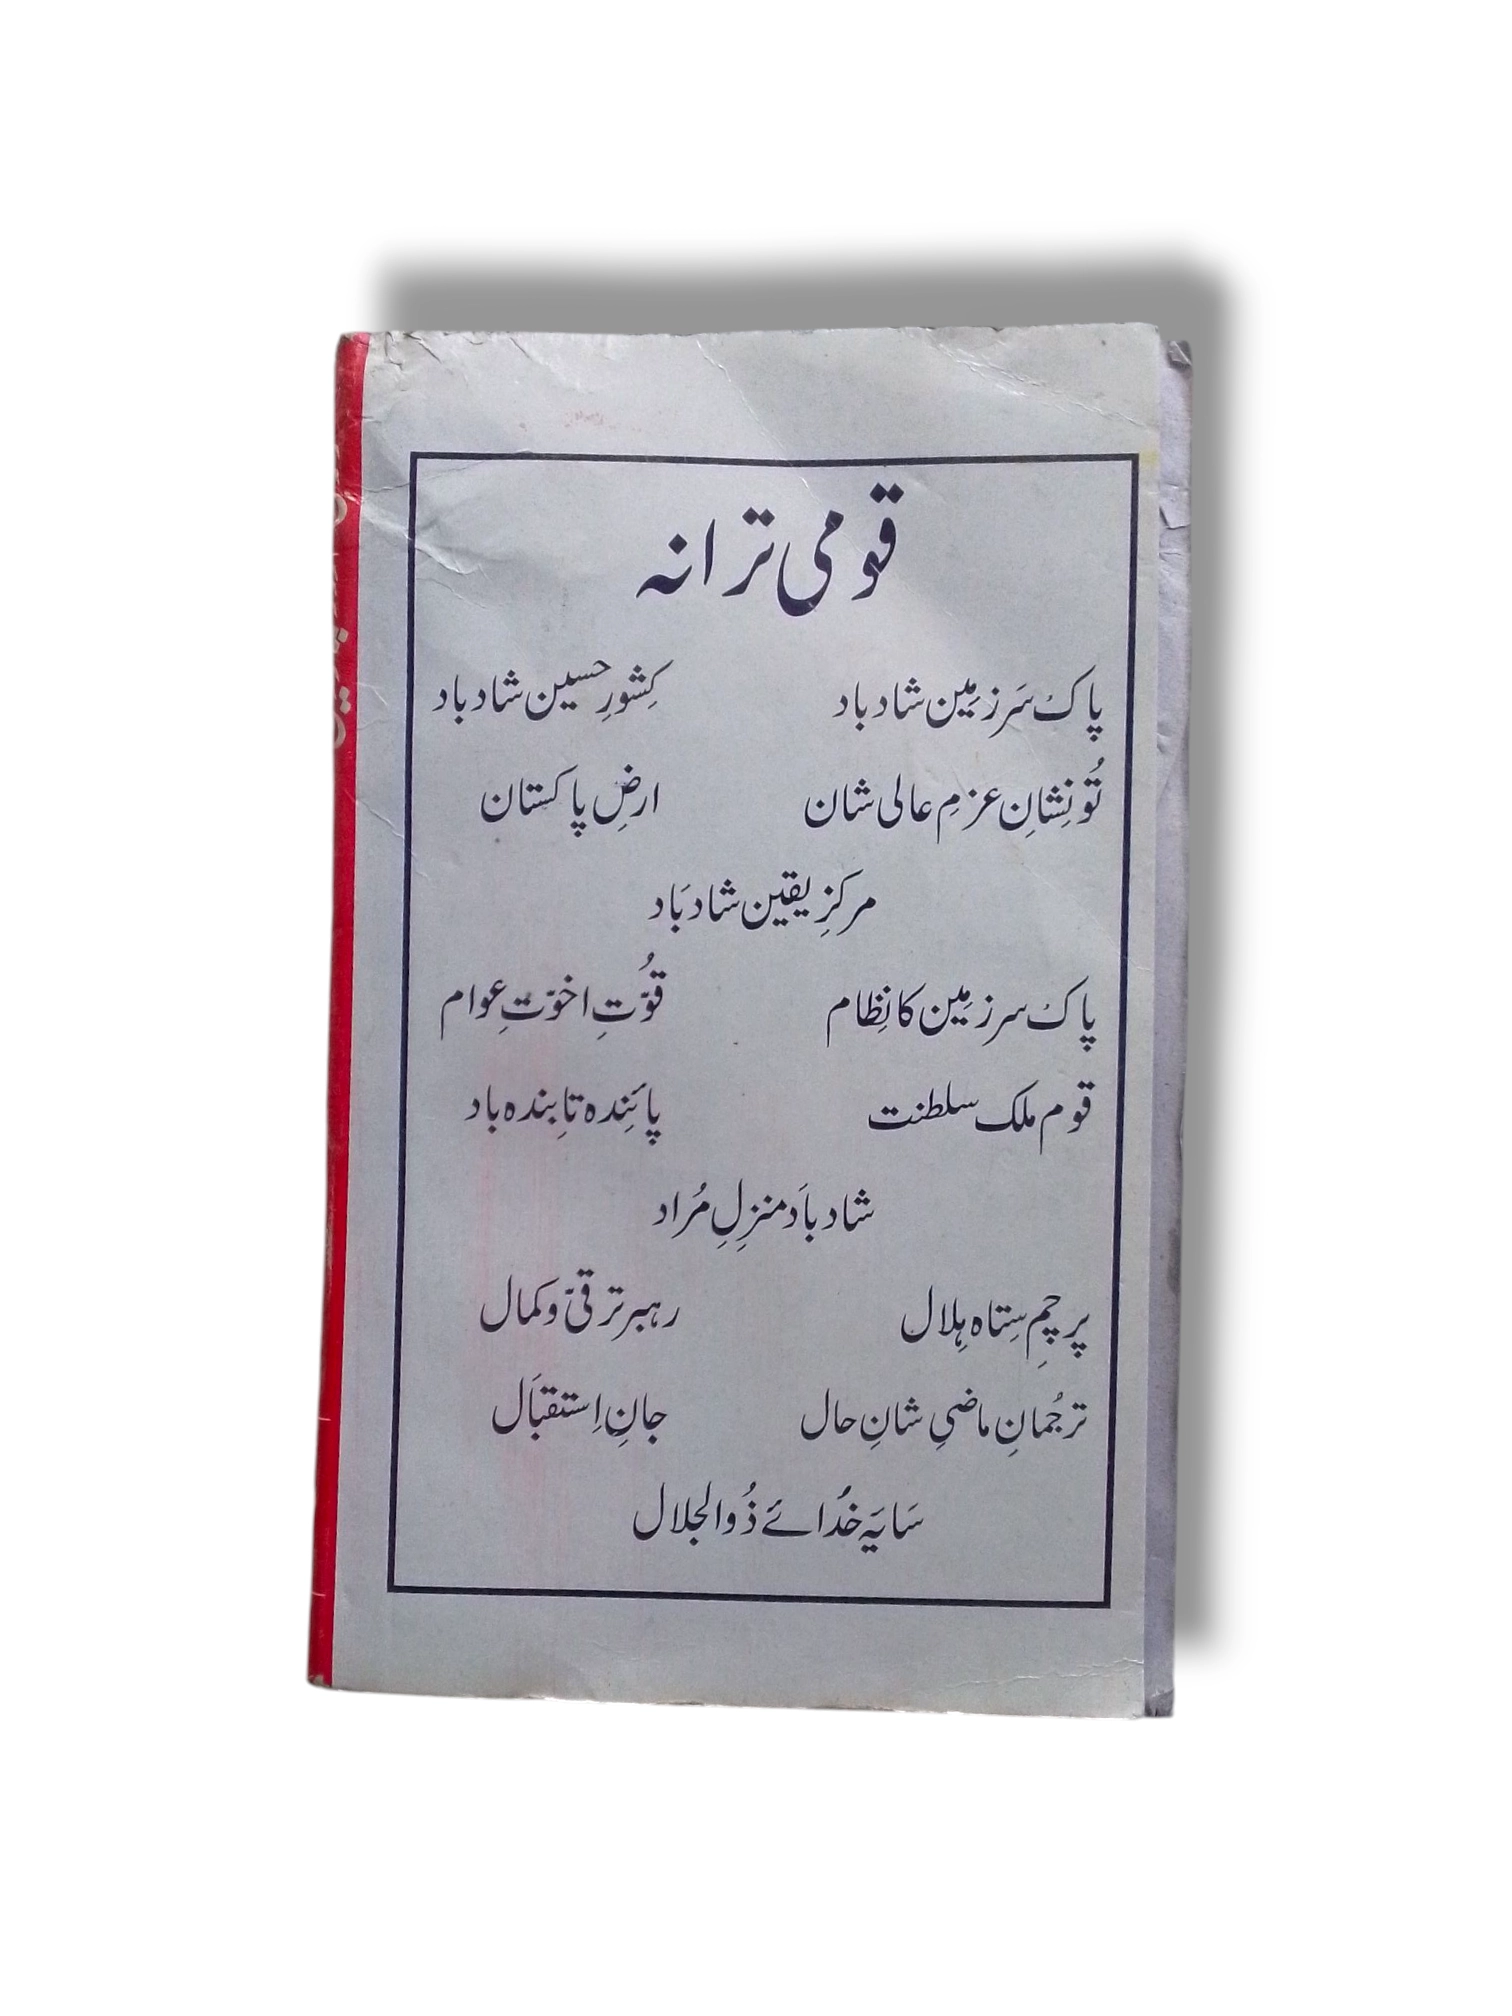 قومی ترانہ
پاک سَرزمِین شادباد کِشورِ حسین شادباد
تُو نِشانِ عزمِ عالی شان ارضِ پاکستان
مرکزِ یقین شادبَاد
پاک سرزمِین کا نِظام قوُّتِ اخوّتِ عوام
قوم ملک سلطنت پائندہ تابِندہ باد
شادبَاد منزلِ مُراد
پرچمِ سِتاہ ہِلال رہبر ترقیّ و کمال
ترجُمانِ ماضیِ شانِ حال جانِ اِستقبَال
سَایَہ خُدائے ذُوالجلال